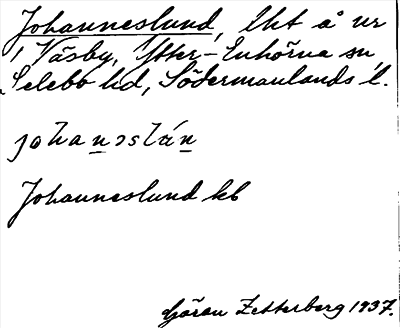 Johanneslund, lht å nr
1 Väsby, Ytter-Enhörna sn
Selebo hd, Södermanlands l.
johanəslán
Johanneslund kb
Göran Zetterberg 1937.